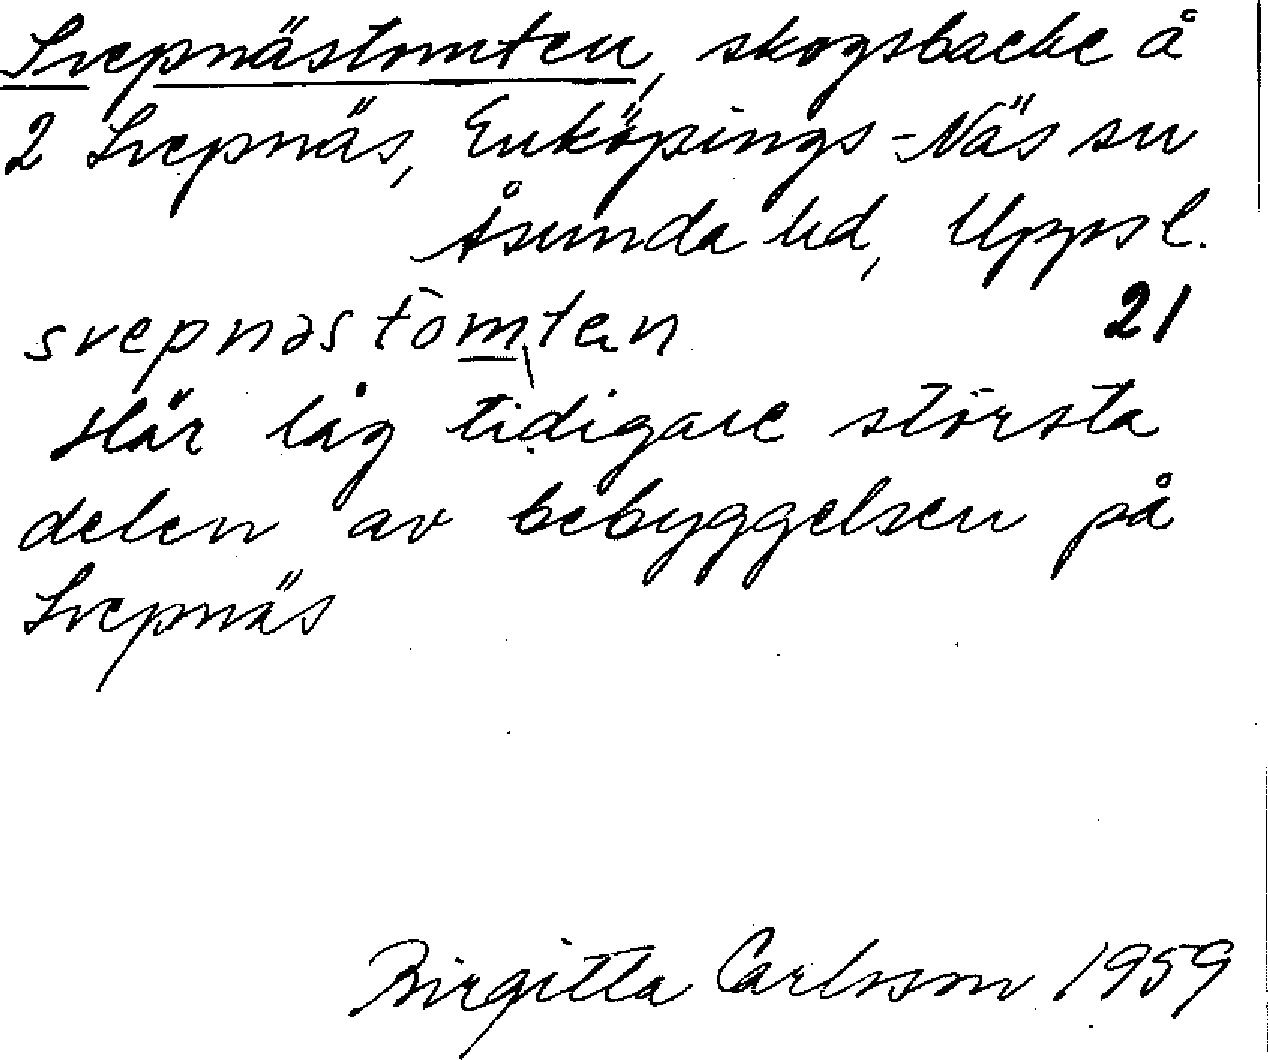 Svepnästomten, skogsbacke å
2 Svepnäs, Enköpings-Näs sn
Åsunda hd, Uppsl.
svepnäs tōmtan 21
Här låg tidigare största
delen av bebyggelsen på
Svepnäs
Birgitta Carlsson 1959